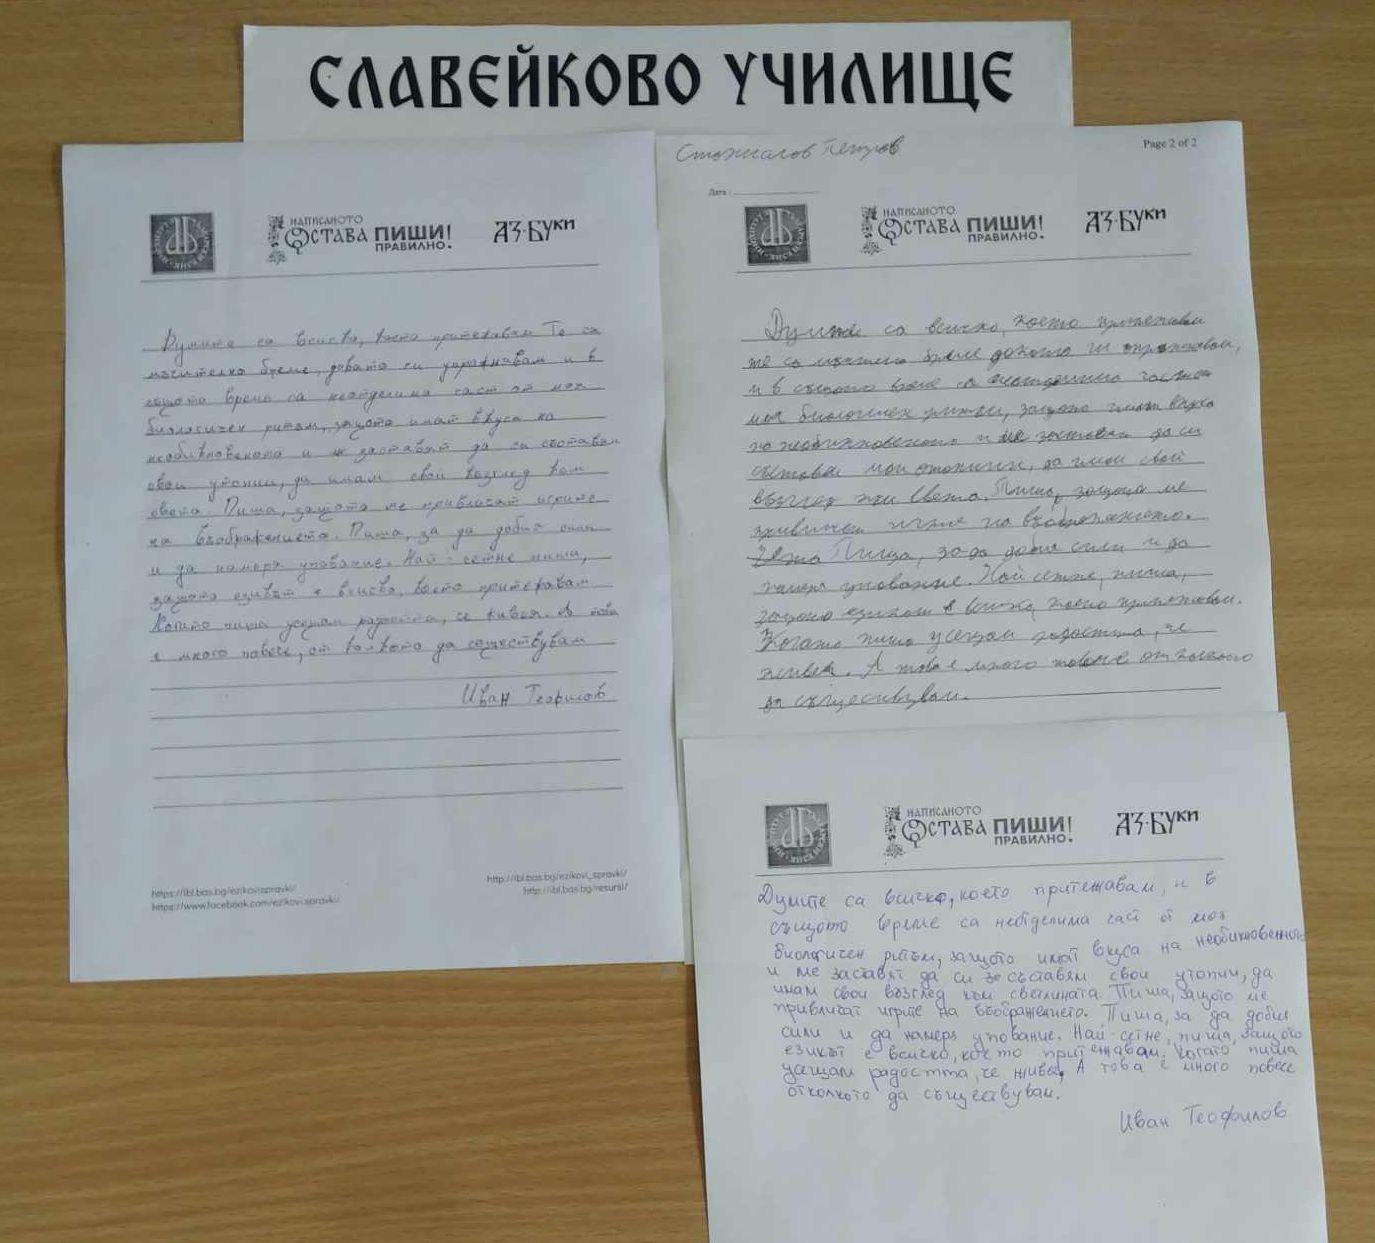 СЛАВЕЙКОВО УЧИЛИЩЕ
НАПИСАНОТО
ОСТАВА ПИШИ!
ПРАВИЛНО.
АЗ·БУКИ
Думите са всичко, което притежавам Те са
мъчително бреме, докато ги упражнявам и в
същото време са неотделима част от моя
биологичен ритъм, защото имат вкуса на
необикновеното и ме заставят да си съставям
свои утопии, да имам свой възглед към
света. Пиша, защото ме привличат игрите
на въображението. Пиша, за да добия сили
и да намеря упование. Най-сетне пиша,
защото езикът е всичко, което притежавам
Когато пиша усещам радостта, че живея. А това
е много повече, от колкото да съществувам
Иван Теофилов
https://ibl.bas.bg/ezikovispravki/
https://www.facebook.com/ezikovi.spravki/
http://ibl.bas.bg/ezikovi_spravki/
http://ibl.bas.bg/resursi/
Петров
Page 2 of 2
Дата:
НАПИСАНОТО
ОСТАВА ПИШИ!
ПРАВИЛНО.
АЗ·БУКИ
Думите са всичко, което притежавам
те са бреме докато ги
и в същото време са част от
моя биологичен ритъм, защото имат вкуса
на необикновеното и ме заставят да си
съставям мои утопии, да имам свой
възглед към света. Пиша, защото ме
привличат игрите на въображението.
Пиша, за да добия сили и да
намеря упование. Най сетне, пиша,
защото езикът е всичко, което притежавам.
Когато пиша усещам радостта, че
живея. А това е много повече от колкото
да съществувам.
НАПИСАНОТО
ОСТАВА ПИШИ!
ПРАВИЛНО.
АЗ·БУКИ
Думите са всичко, което притежавам, и в
същото време са неотделима част от моя
биологичен ритъм, защото имат вкуса на необикновеното
и ме заставят да си съставям свои утопии, да
имам свой възглед към светлината. Пиша, защото ме
привличат игрите на въображението. Пиша, за да добия
сили и да намеря упование. Най-сетне, пиша, защото
езикът е всичко, което притежавам. Когато пиша
усещам радостта, че живея, А това е много повече
отколкото да съществувам.
Иван Теофилов